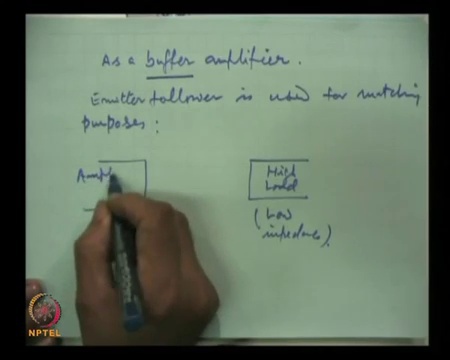 As a buffer amplifier.
Emitter follower is used for matching
purposes:
Ampl
High
Load
(Low
impedance)
NPTEL